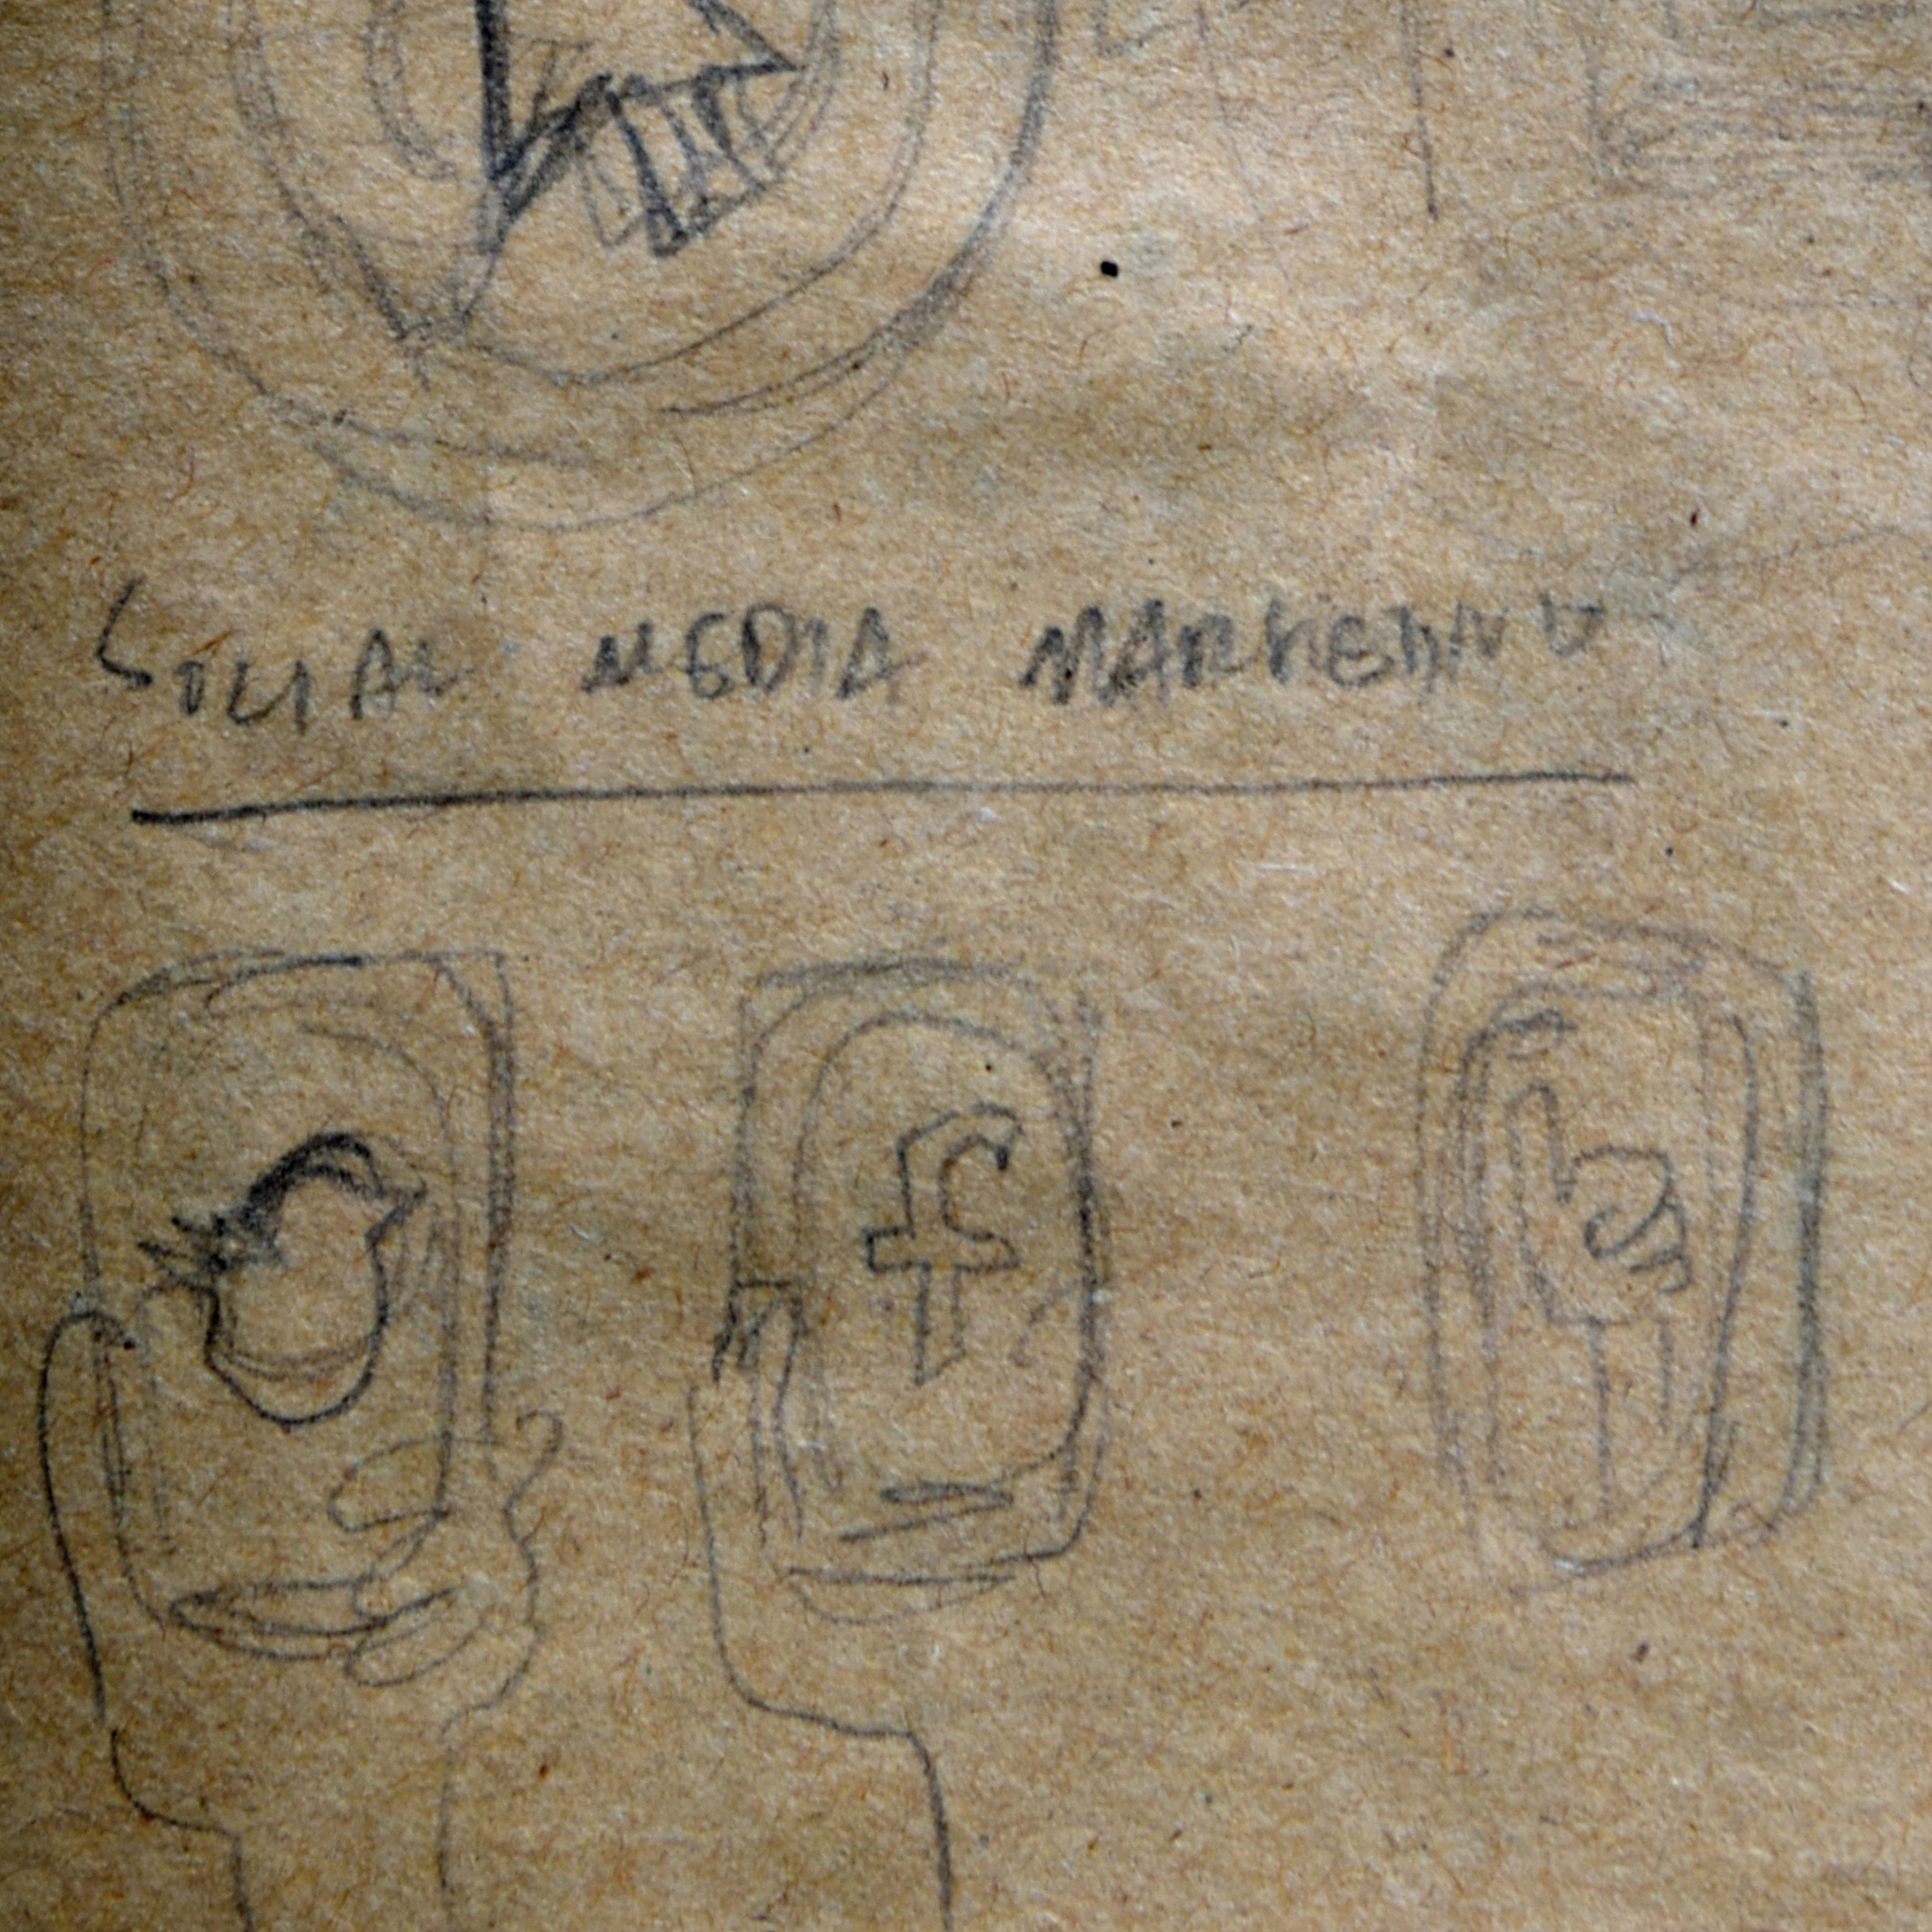 SOCIAL MEDIA MARKETING
f